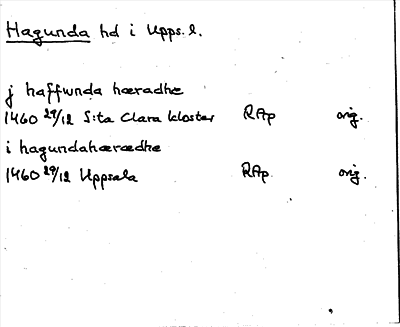 Hagunda hd i Upps.l.
j haffwnda hæradhe
1460 29/12 S:ta Clara kloster RAp orig.
i hagundahærædhe
1460 29/12 Uppsala RAp orig.